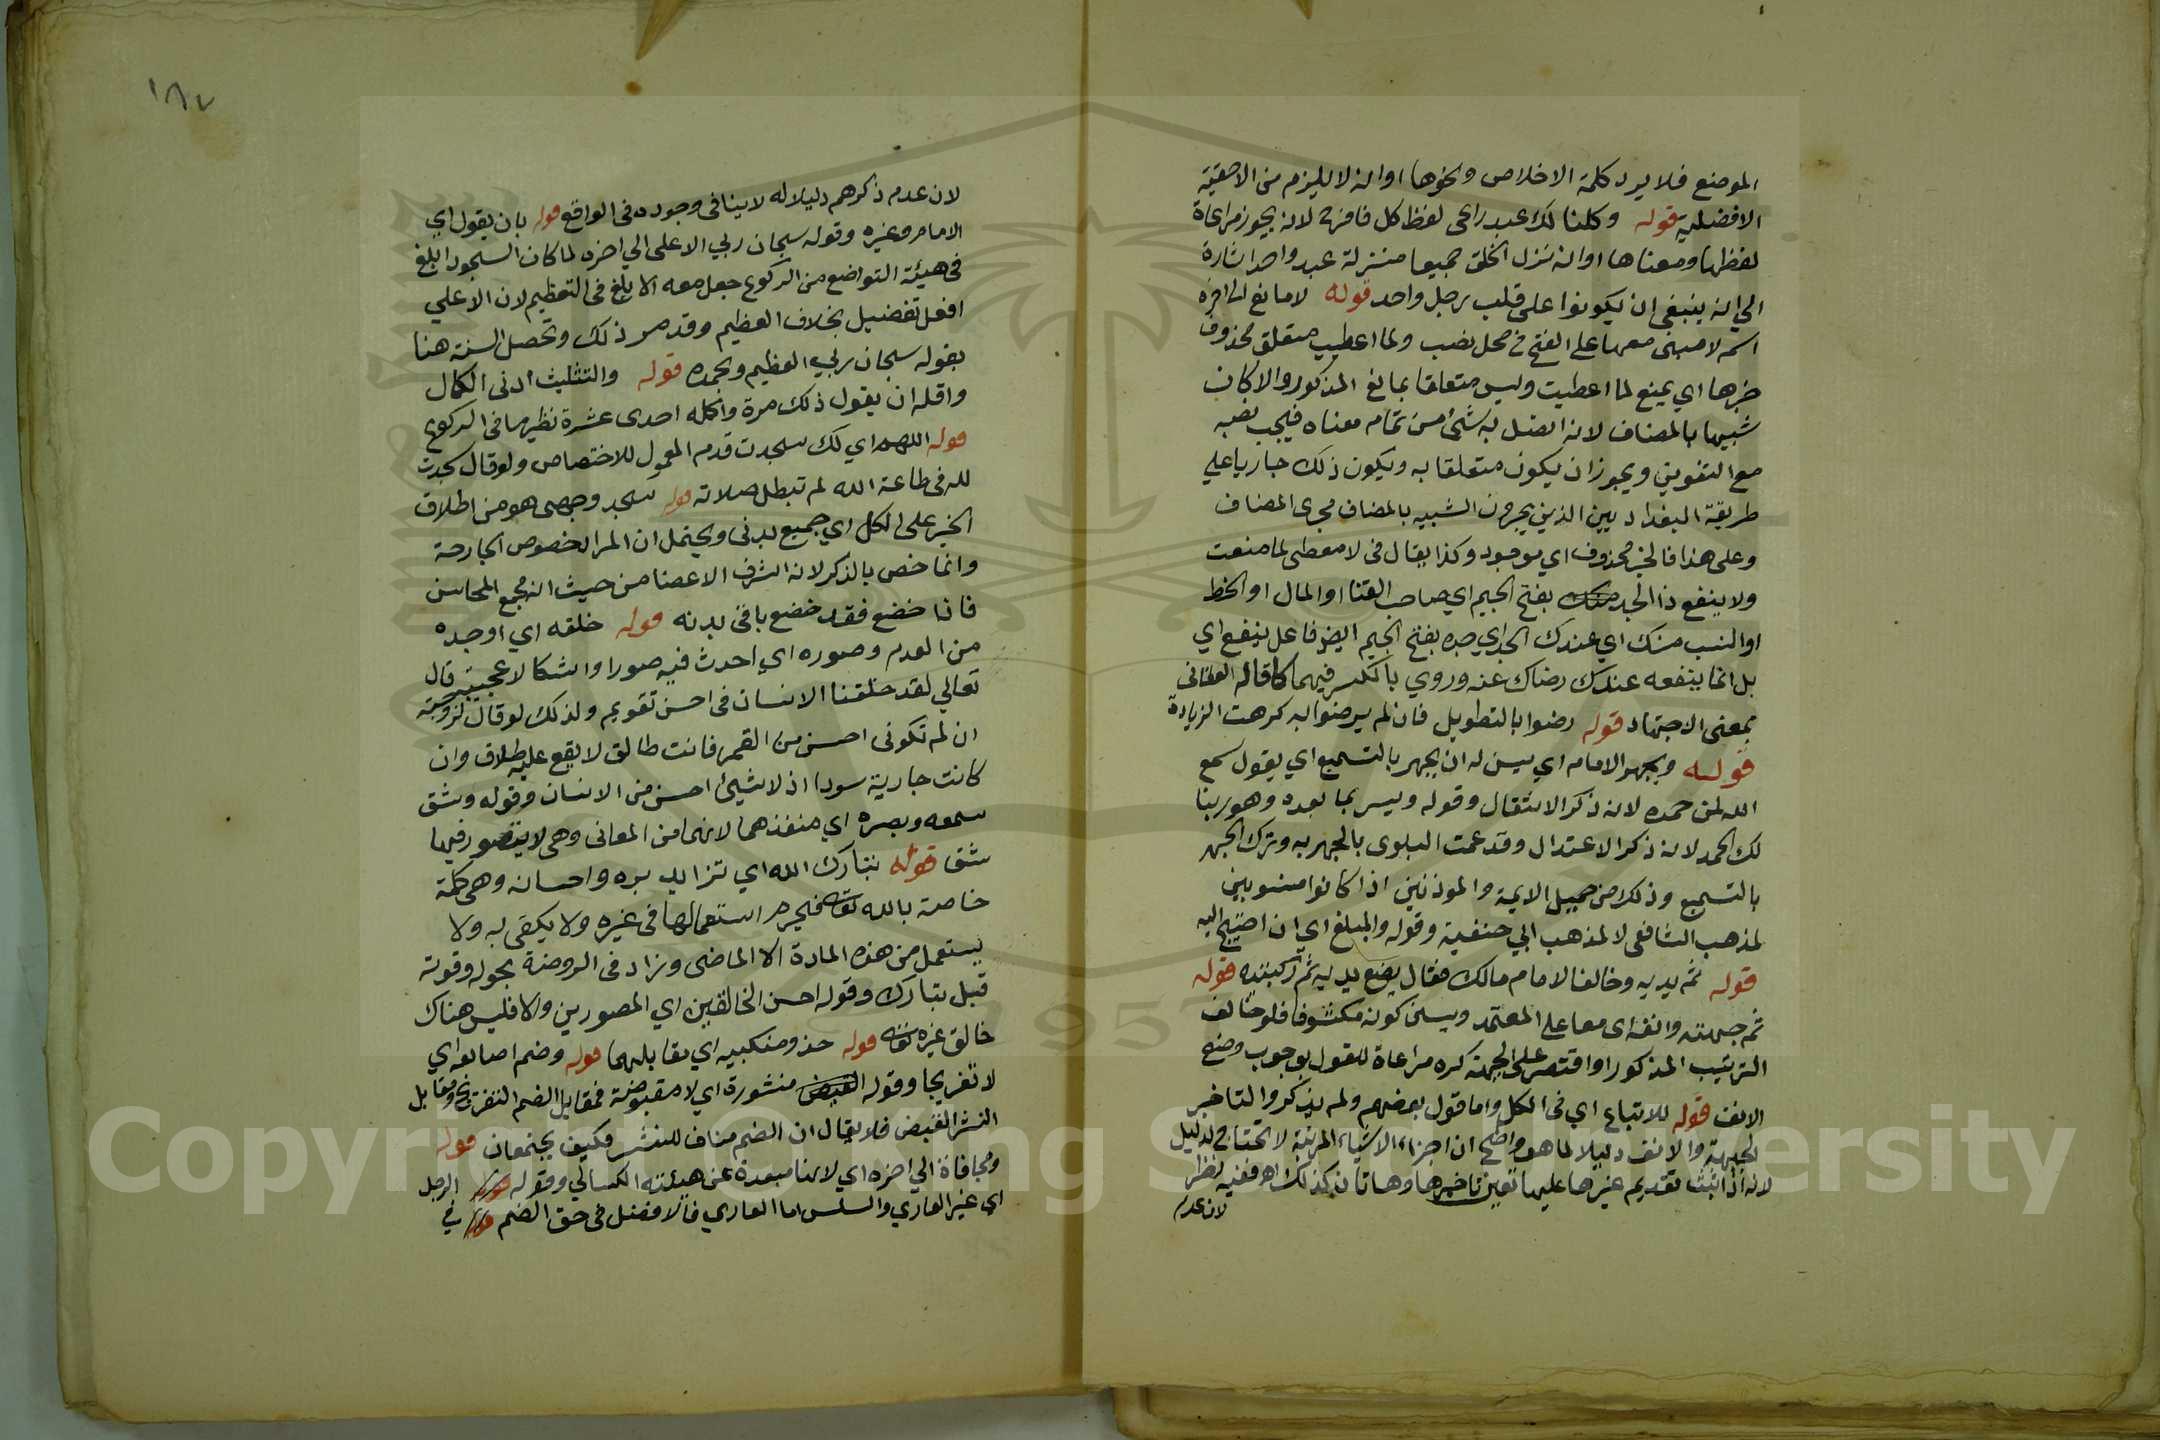 الموضع فلا يرد كلمة الاخلاص ونحوها او انه لا يلزم من الاحقية
الافضلية قوله وكلنا لك عبد راعى لفظ كل فافرد لانه يجوز مراعاة
لفظها ومعناها او انه نزل الخلق جميعا منزلة عبد واحد اشارة
الي انه ينبغي ان يكونوا على قلب رجل واحد قوله لا مانع الى اخره
اسم لا مبنى معها على الفتح في محل نصب ولما اعطيت متعلق بمحذوف
خبرها اي يمنع لما اعطيت وليس متعلقا بمانع المذكور والا كان
شبيها بالمضاف لانه اتصل به شئ من تمام معناه فيجب نصبه
مع التنوين ويجوز ان يكون متعلقا به ويكون ذلك جاريا على
طريقة البغداديين الذين يجرون الشبيه بالمضاف مجرى المضاف
وعلى هذا فالخبر محذوف اي موجود وكذا يقال في لا معطى لما منعت
ولا ينفع ذا الجد بفتح الجيم اي صاحب الغنا او المال او الحظ
او النسب منك اي عندك الجد اي جده بفتح الجيم ايضا فاعل ينفع اي
بل انما ينفعه عندك رضاك عنه وروي بالكسر فيهما كما قاله
بمعنى الاجتهاد قوله رضوا بالتطويل فان لم يرضوا به كرهت الزيادة
قوله ويجهر الامام اي يسن له ان يجهر بالتسميع اي بقول سمع
الله لمن حمده لانه ذكر الانتقال وقوله ويسر بما بعده وهو ربنا
لك الحمد لانه ذكر الاعتدال وقد عمت البلوى بالجهر به وترك الجهر
بالتسميع وذلك من جهل الايمة والموذنين اذا كانوا منسوبين
لمذهب الشافعى لا لمذهب ابي حنفية وقوله والمبلغ اي ان احتيج اليه
قوله ثم يديه وخالفنا الامام مالك فقال يضع يديه ثم ركبتيه قوله
ثم جبهته وانفه اى معا على المعتمد ويسن كونه مكشوفا فلو خالف
الترتيب المذكور او اقتصر على الجبهة كره مراعاة للقول بوجوب وضع
الانف قوله للاتباع اي في الكل واما قول بعضهم ولم يذكروا لتاخير
الجبهة والانف دليلا لما هو واضح ان اجزاء الاشياء المرتبة لا تحتاج لدليل
لانه اذا ثبت تقديم غيرها عليها تعين تاخيرها وهاتان كذلك اهـ ففيه نظر
لان عدم
١٨٧
لان عدم ذكرهم دليلا له لا ينافى وجوده في الواقع قوله بان يقول اي
الامام وغيره وقوله سبحان ربي الاعلى الى اخره لما كان السجود ابلغ
في هيئة التواضع من الركوع جعل معه الابلغ في التعظيم لان الاعلي
افعل تفضيل بخلاف العظيم وقد مر ذلك وتحصل السنة هنا
بقوله سبحان ربي العظيم وبحمده قوله والتثليث ادنى الكمال
واقله ان يقول ذلك مرة واكمله احدى عشرة نظير ما في الركوع
قوله اللهم اي لك سجدت قدم المعمول للاختصاص ولو قال سجدت
لله في طاعة الله لم تبطل صلاته قوله سجد وجهى هو من اطلاق
الجزء على الكل اي جميع بدنى ويحتمل ان المراد خصوص الجارحة
وانما خص بالذكر لانه اشرف الاعضا من حيث انه مجمع المحاسن
فاذا خضع فقد خضع باقى بدنه قوله خلقه اي اوجده
من العدم وصوره اي احدث فيه صورا واشكالا عجيبة قال
تعالي لقد خلقنا الانسان في احسن تقويم ولذلك لو قال لزوجته
ان لم تكونى احسن من القمر فانت طالق لا يقع عليه طلاق وان
كانت جارية سودا اذ لا شيئ احسن من الانسان وقوله وشق
سمعه وبصره اي منفذهما لانهما من المعانى وهى لا يتصور فيها
شق قوله تبارك الله اي تزايد بره واحسانه وهى كلمة
خاصة بالله تعالى فيحرم استعمالها في غيره ولا يكفى به ولا
يستعمل من هذه المادة الا الماضى وزاد في الروضة بحوله وقوته
قبل تبارك وقوله احسن الخالقين اي المصورين والا فليس هناك
خالق غيره تعالى قوله حذو منكبيه اي مقابلهما قوله وضم اصابعه اي
لا تفريجا وقوله منشورة اي لا مقبوضة فمقابل الضم التفريج ومقابل
النشر القبض فلا يقال ان الضم مناف للنشر فكيف يجتمعان قوله
ومجافاة الي اخره اي لانها مبعدة عن هيئته الكسالي وقوله الرجل
اي غير العاري والسلس اما العاري فالافضل في حق الضم في